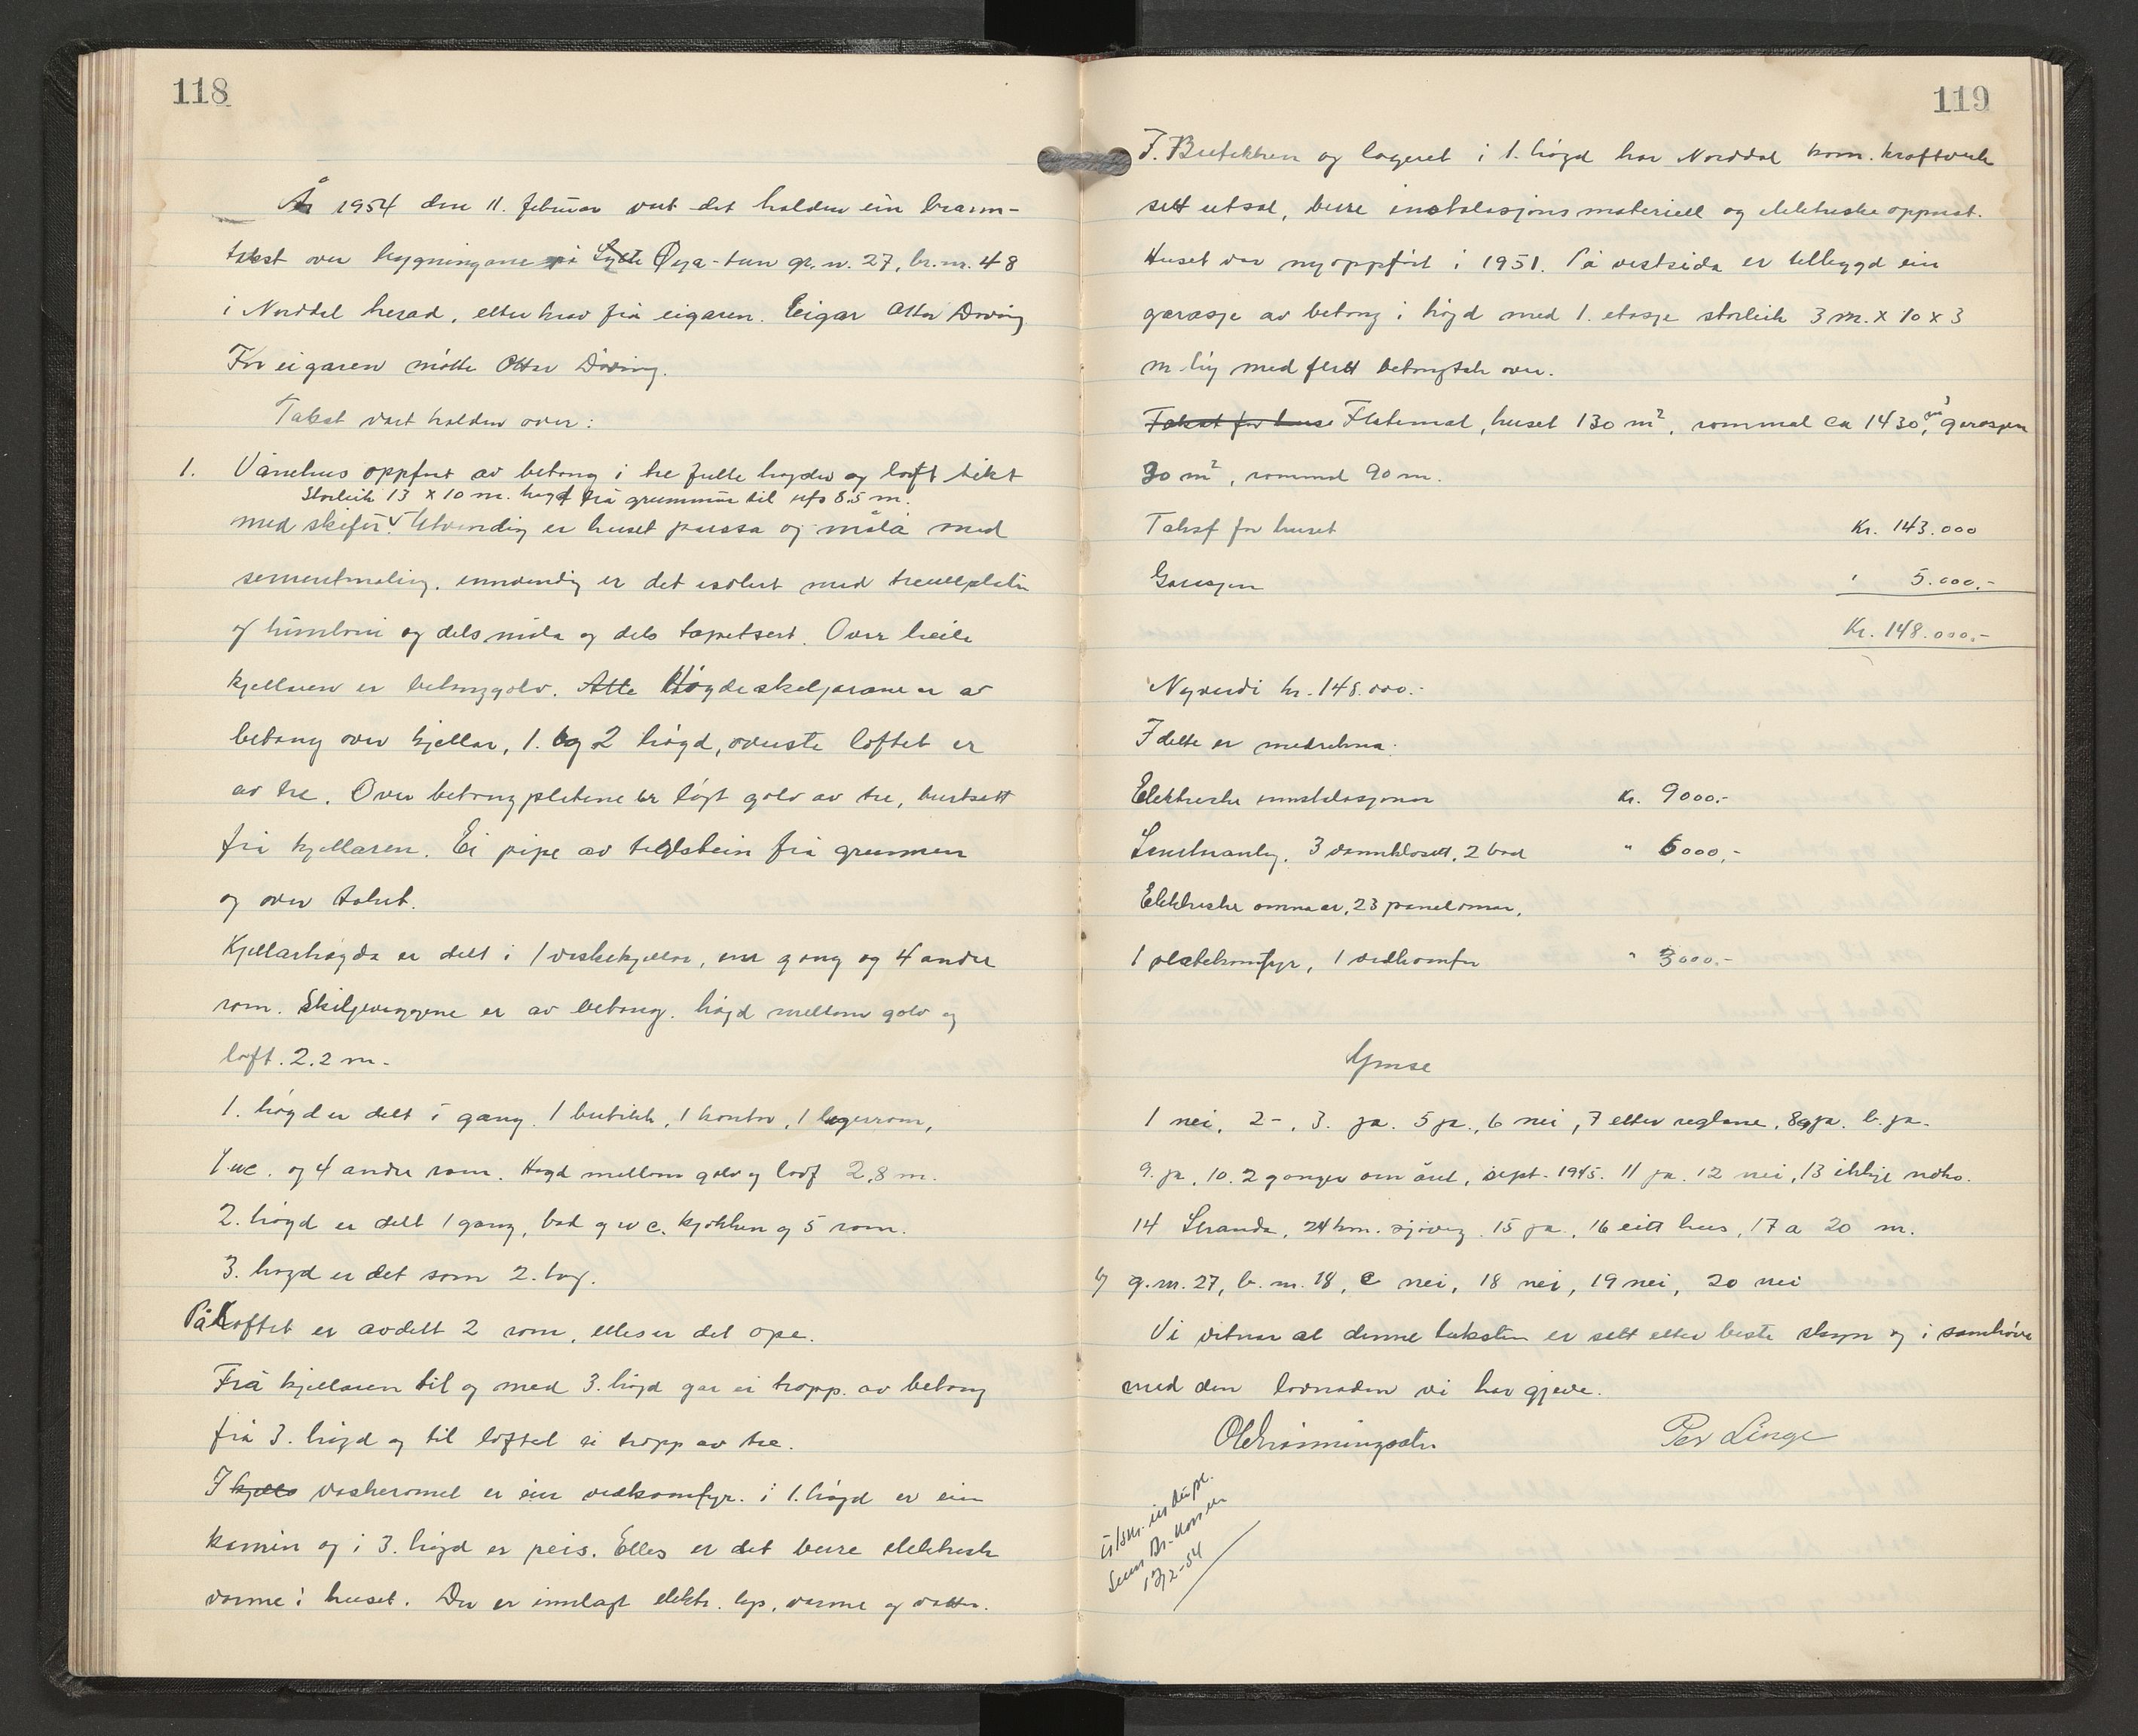 118
År 1954 den 11. februar vart det halden ein brann-
takst over bygningane på Øya-tun gr. nr. 27, br. nr. 48
i Norddal herad, etter krav frå eigaren. Eigar Otter Døving
For eigaren møtte Otter Døving.
Takst vart halden over:
1. Vånehus oppført av betong i tre fulle høgder og loft tekt
Storleik 13 x 10 m. høgd frå grunnmur til ufs 8.5 m.
med skifer. Utvendig er huset pussa og måla med
sementmaling. innvendig er det isolert med treullplater
og dels måla og dels tapetsert. Over heile
kjellaren er betonggolv. Alle Høgdeskeljarane er av
betong over kjellar, 1. og 2 høgd, øverste loftet er
av tre. Over betongplatene er lagt golv av tre, burtsett
frå kjellaren. Ei pipe av teglstein frå grunnen
og over taket.
Kjellarhøgda er delt i 1 vaskekjellar, ein gang og 4 andre
rom. Skiljeveggene er av betong. høgd mellom golv og
loft. 2.2 m.
1. høgd er delt i gang. 1 butikk, 1 kontor, 1 lagerrom,
1 wc. og 4 andre rom. Høgd mellom golv og loft 2,8 m.
2. høgd er delt 1 gang, bad og wc. kjøkken og 5 rom.
3. høgd er det som 2. høg.
På Loftet er avdelt 2 rom, elles er det ope.
Frå kjellaren til og med 3. høgd går ei tropp. av betong
frå 3. høgd og til loftet ei tropp av tre.
I kjello vaskeromet er ein vedkomfyr. i 1. høgd er ein
kamin og i 3. høgd er peis. Elles er det berre elektrisk
varme i huset. Der er innlagt elektr. lys, varme og vatn.
119
I. Butikken og lageret i 1. høgd har Norddal kom. kraftverk
sitt utsal, berre installasjonsmateriell og elektriske apparat.
Huset var nyoppført i 1951. På vestsida er tilbygd ein
garasje av betong i høgd med 1. etasje storleik 3 m. x 10 x 3
m høg med flatt betongtak over.
Takst for huse Flatemål, huset 130 m², rommål ca 1430 m³, garasjen
30 m², rommål 90 m.
Takst for huset Kr. 143.000
Garasjen " 5.000.-
Kr. 148.000.-
Nyverdi kr. 148.000.-
I dette er medrekna:
Elektriske innstalasjonar Kr. 9000.-
3 vannklosett, 2 bad " 6000,-
Elektriske omnar, 23 panelomnar,
1 platekomfyr, 1 vedkomfyr " 3000.-
Ymse
1 nei, 2 -, 3. ja. 5 ja., 6 nei, 7 etter reglane, 8a ja. b. ja.
9. ja, 10. 2 gonger om året, sept. 1945. 11 ja. 12 nei, 13 ikkje
14 Stranda, 24 km. sjøveg. 15 ja., 16 eitt hus, 17 a 20 m.
b) g.nr. 27, b. nr. 18, c nei, 18 nei, 19 nei, 20 nei
Vi vitnar at denne taksten er sett etter beste skjøn og i samhøve
med den lovnaden vi har gjeve.
Per Linge
12/2-54